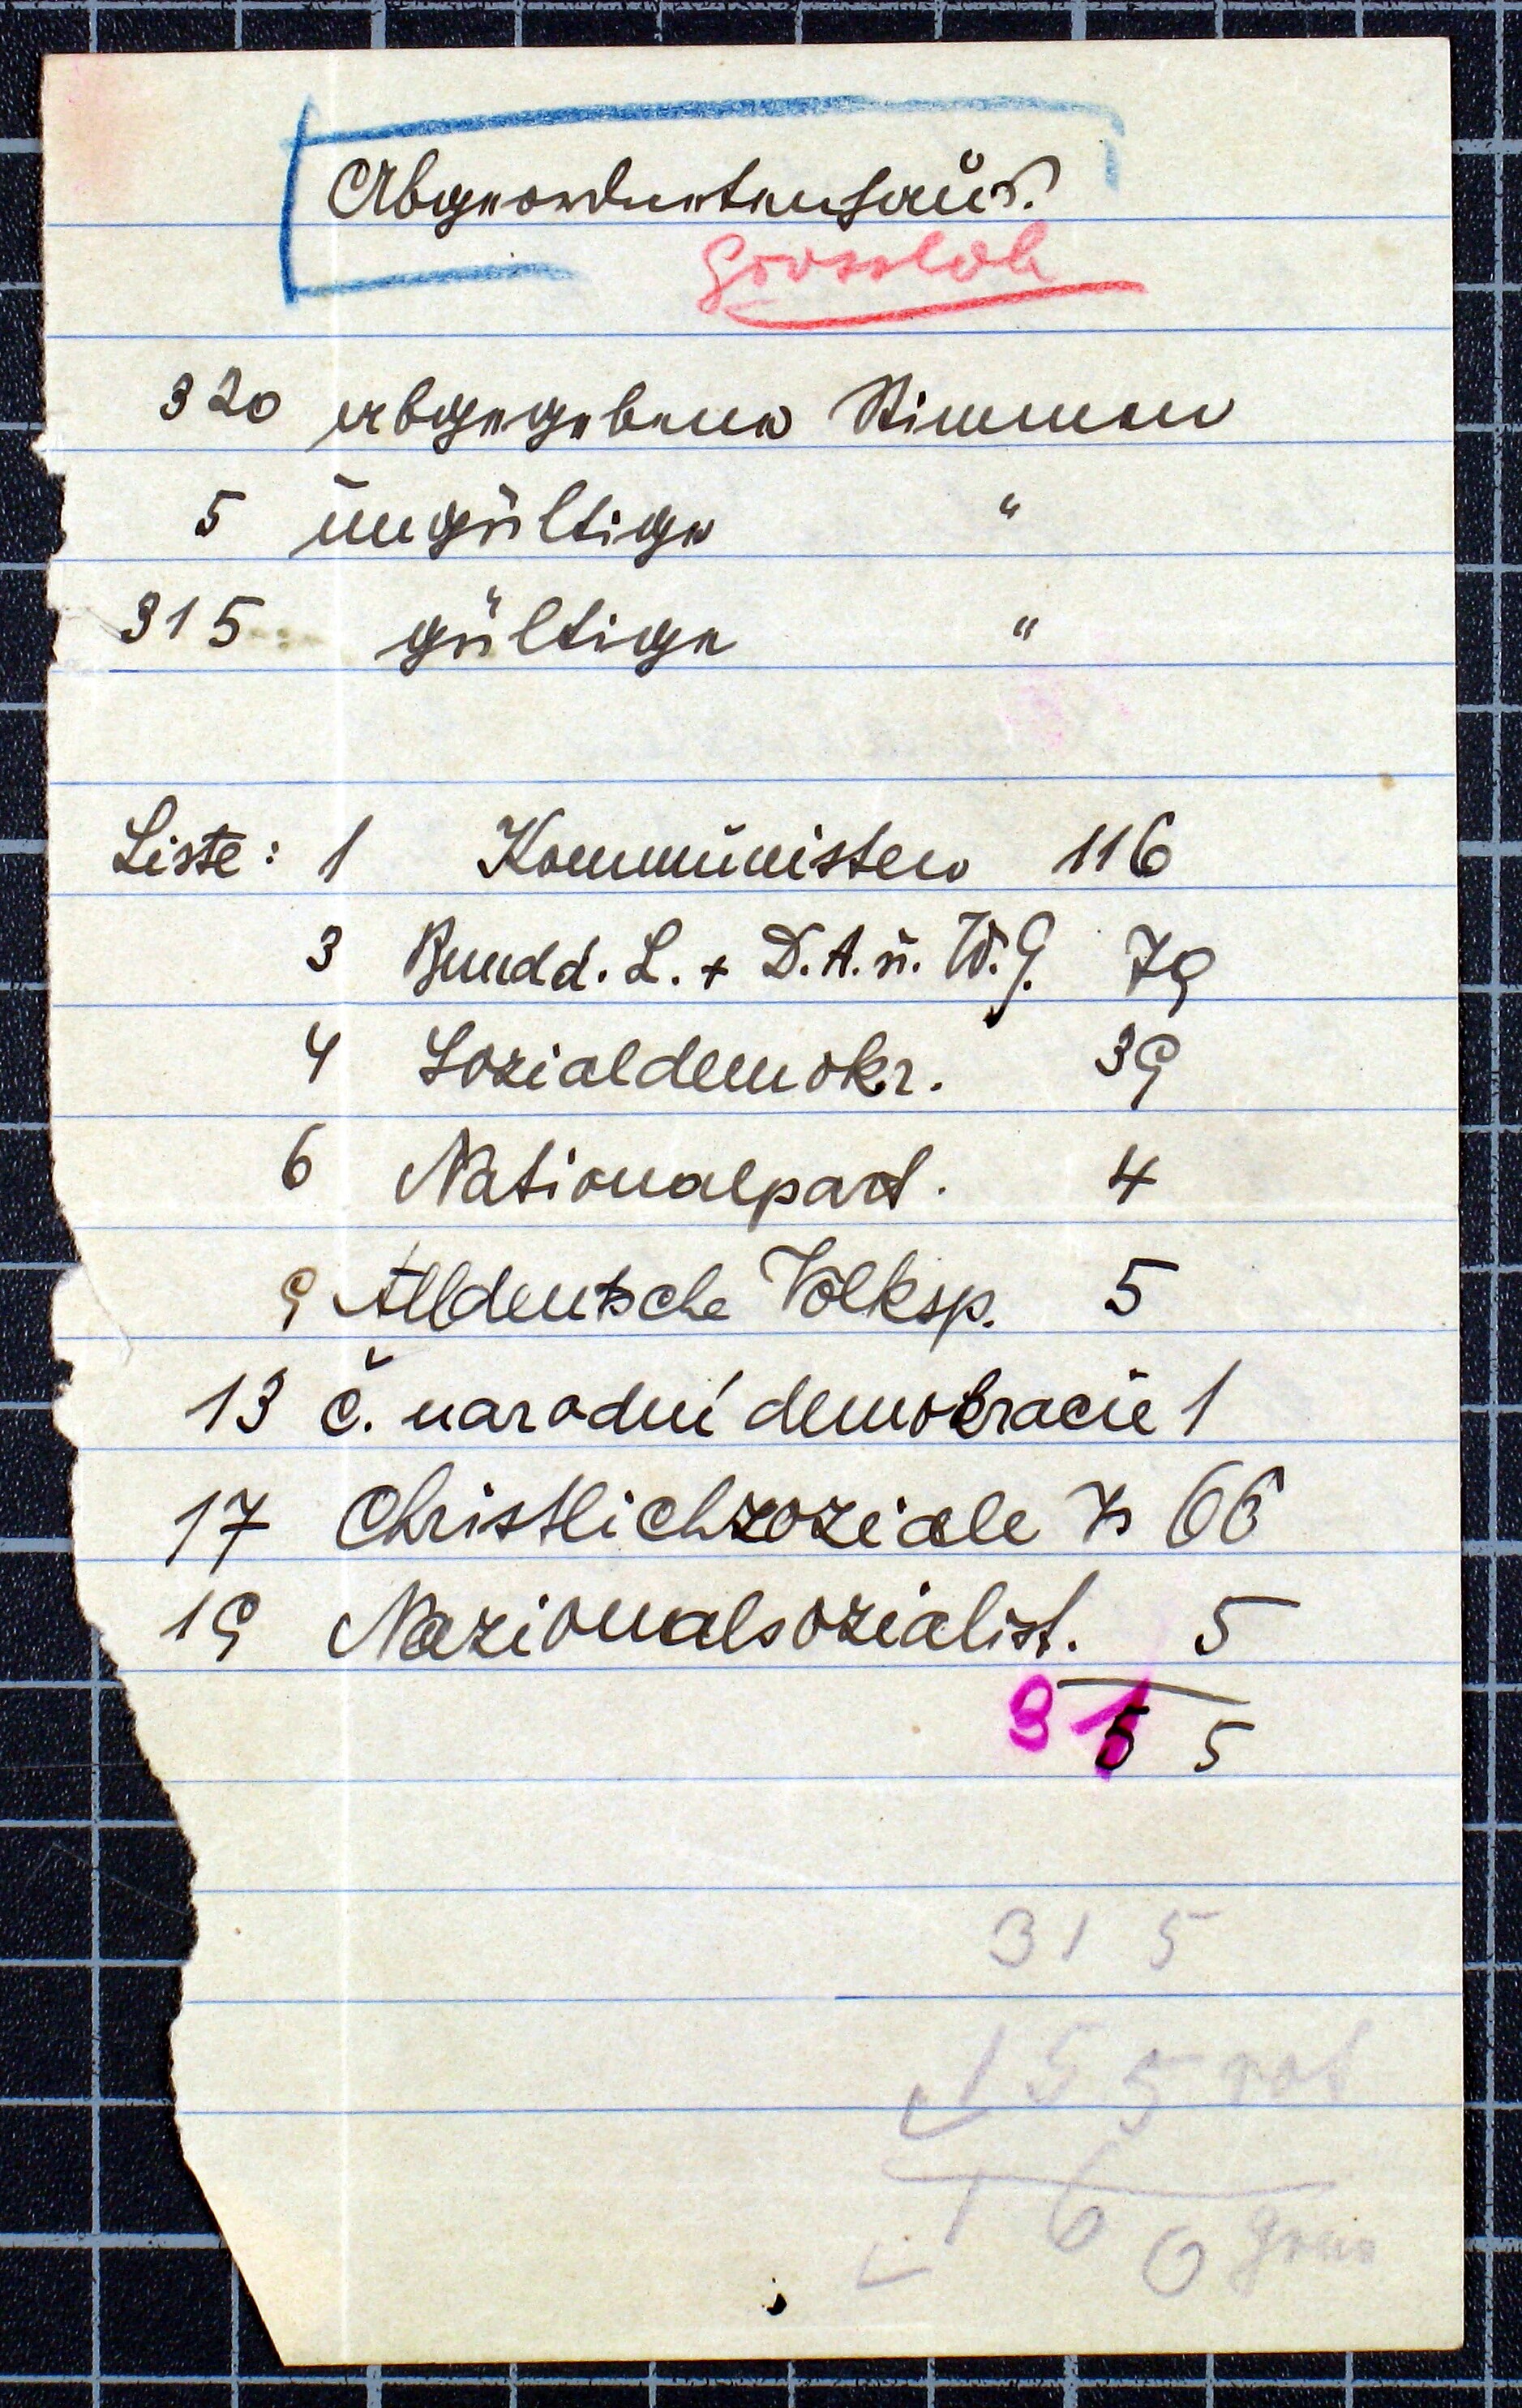 Abgeordnetenhaus.
Grossloh
320 abgegebene Stimmen
5 ungültige "
315 gültige "
Liste: 1 Kommunisten 116
3 Bund d. L. + D. A. u. W. G. 79
4 Sozialdemokr. 39
6 Nationalpart. 4
9 Alldeutsche Volksp. 5
13 č. narodní demokracie 1
17 Christlichsoziale 66
19 Nazionalsozialist. 5
315
315
155 rot
160 grün